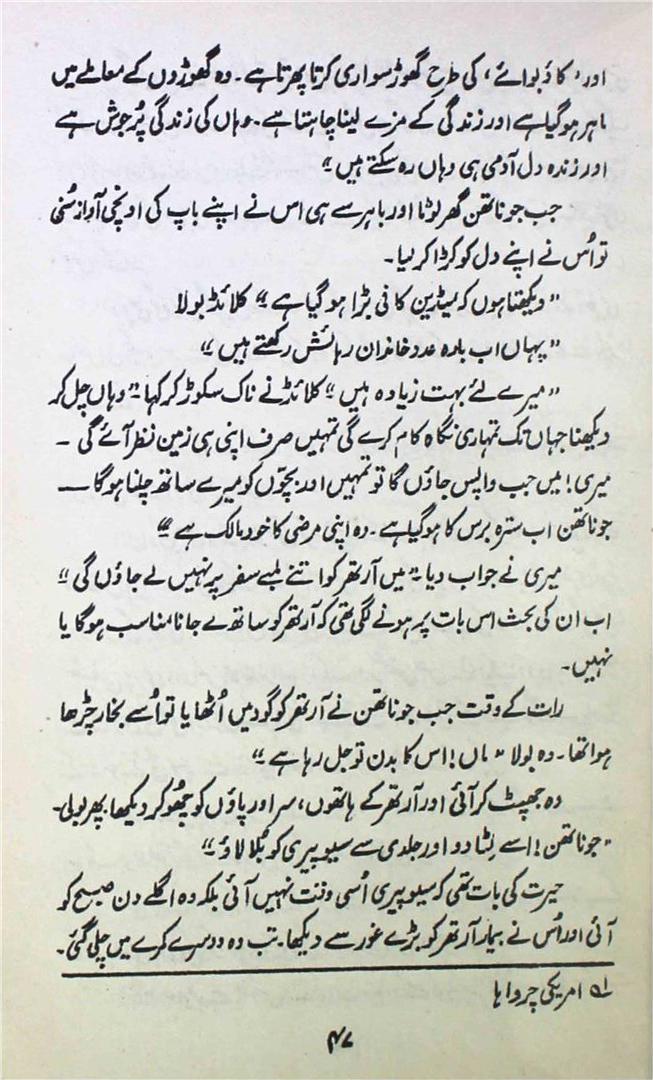 اور، 'کاؤبوائے' کی طرح گھوڑ سواری کرتا پھرتا ہے۔ وہ گھوڑوں کے معاملے میں
ماہر ہو گیا ہے اور زندگی کے مزے لینا چاہتا ہے۔ وہاں کی زندگی پُر جوش ہے
اور زندہ دل آدمی ہی وہاں رہ سکتے ہیں"
جب جوناتھن گھر لوٹا اور باہر سے ہی اس نے اپنے باپ کی اونچی آواز سُنی
تو اُس نے اپنے دل کو کڑا کر لیا۔
"دیکھتا ہوں کہ میڈین کافی بڑا ہو گیا ہے" کلائڈ بولا
"یہاں اب بارہ عدد خاندان رہائش رکھتے ہیں"
"میرے لئے بہت زیادہ ہیں" کلائڈ نے ناک سکوڑ کر کہا "وہاں چل کر
دیکھنا جہاں تک تمہاری نگاہ کام کرے گی تمہیں صرف اپنی ہی زمین نظر آئے گی ۔
میری! میں جب واپس جاؤں گا تو تمہیں اور بچّوں کو میرے ساتھ چلنا ہوگا —
جوناتھن اب سترہ برس کا ہو گیا ہے۔ وہ اپنی مرضی کا خود مالک ہے"
میری نے جواب دیا "میں آرتھر کو اتنے لمبے سفر پر نہیں لے جاؤں گی"
اب ان کی بحث اس بات پر ہونے لگی تھی کہ آرتھر کو ساتھ لے جانا مناسب ہوگا یا
نہیں۔
رات کے وقت جب جوناتھن نے آرتھر کو گود میں اُٹھایا تو اُسے بخار چڑھا
ہوا تھا۔ وہ بولا "ماں! اس کا بدن تو جل رہا ہے"
وہ جھپٹ کر آئی اور آرتھر کے ہاتھوں، سر اور پاؤں کو چھُو کر دیکھا پھر بولی۔
"جوناتھن! اسے لِٹا دو اور جلدی سے سیوپیری کو بُلا لاؤ"
حیرت کی بات تھی کہ سیوپیری اُسی وقت نہیں آئی بلکہ وہ اگلے دن صبح کو
آئی اور اُس نے بیمار آرتھر کو بڑے غور سے دیکھا۔ تب وہ دوسرے کمرے میں چلی گئی۔
۱؎ امریکی چرواہا
۴۷